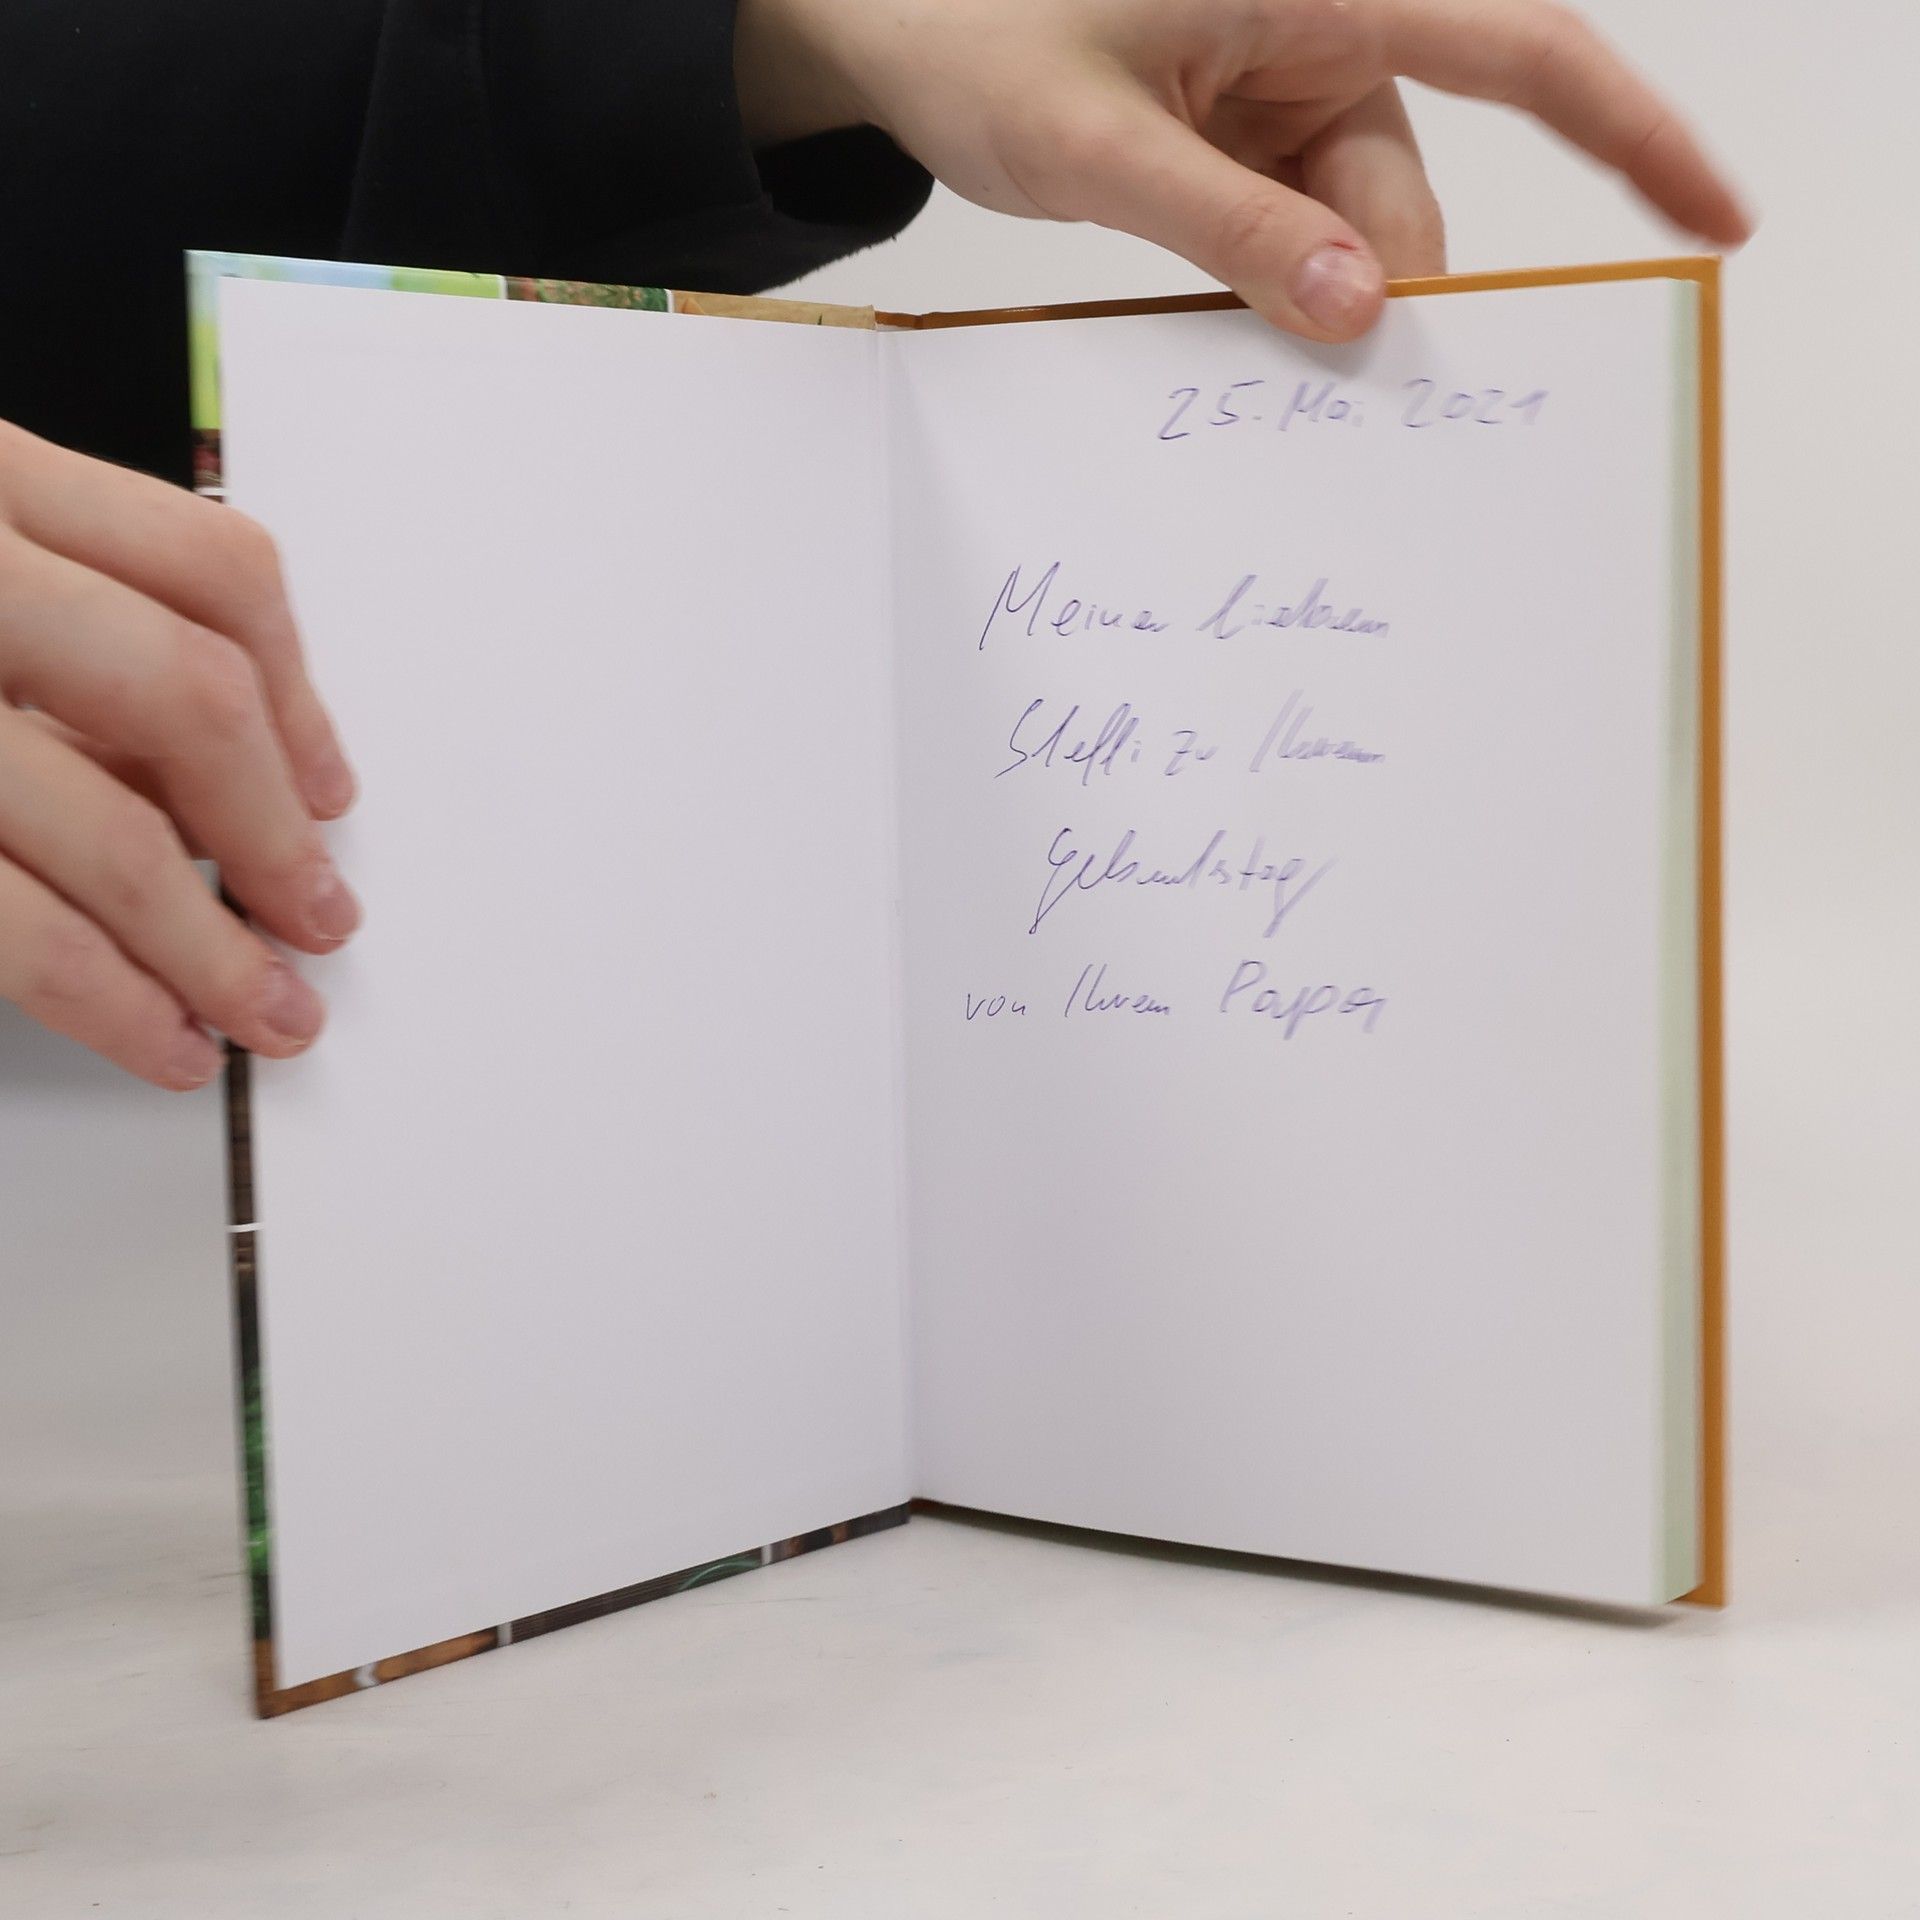 25. Mai 2021
Meiner lieben
Steffi zu Ihrem
Geburtstag
von Ihrem Papa